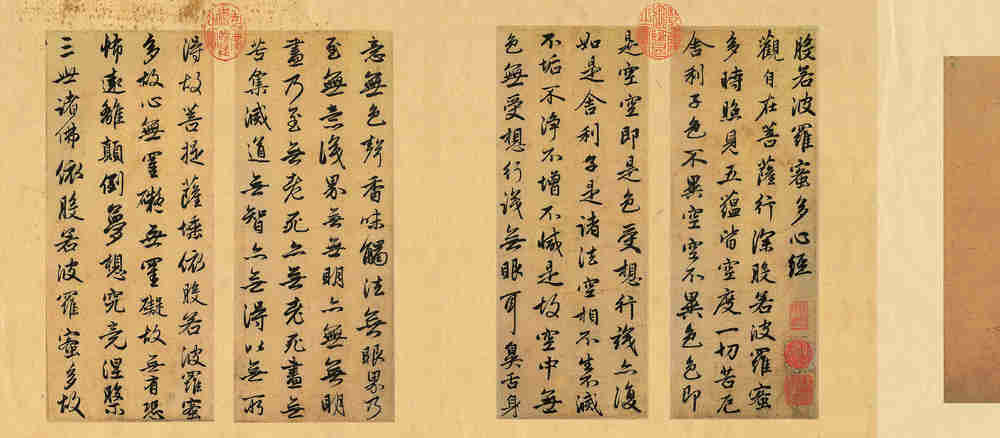 般若波羅蜜多心經
觀自在菩薩行深般若波羅蜜
多時照見五蘊皆空度一切苦厄
舍利子色不異空空不異色色即
是空空即是色受想行識亦復
如是舍利子是諸法空相不生不滅
不垢不淨不增不減是故空中無
色無受想行識無眼耳鼻舌身
意無色聲香味觸法無眼界乃
至無意識界無無明亦無無明
盡乃至無老死亦無老死盡無
苦集滅道無智亦無得以無所
得故菩提薩埵依般若波羅蜜
多故心無罣礙無罣礙故無有恐
怖遠離顛倒夢想究竟涅槃
三世諸佛依般若波羅蜜多故